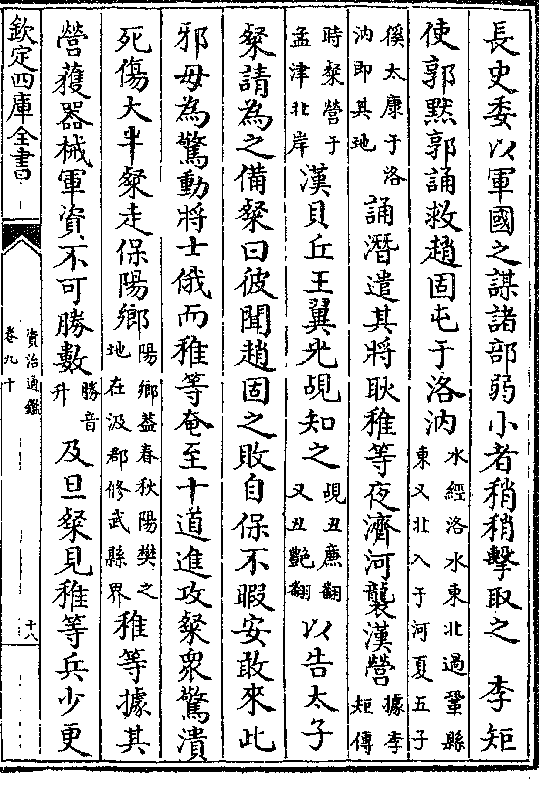 長史委以軍國之謀諸部弱小者稍稍擊取之　李矩
使郭黙郭誦救趙固屯于洛汭水經洛水東北過鞏縣東又北入于河夏五子
徯太康于洛汭即其地誦潛遣其將耿稚等夜濟河襲漢營據李矩傳
時粲營于孟津北岸漢貝丘王翼光覘知之覘丑亷翻又丑豔翻以告太子
粲請為之備粲曰彼聞趙固之敗自保不暇安敢來此
邪毋為驚動將士俄而稚等奄至十道進攻粲衆驚潰
死傷大半粲走保陽鄉陽鄉葢春秋陽樊之地在汲郡修武縣界稚等據其
營獲器械軍資不可勝數勝音升及旦粲見稚等兵少更
欽定四庫全書
資治通鑑
卷九十
十八